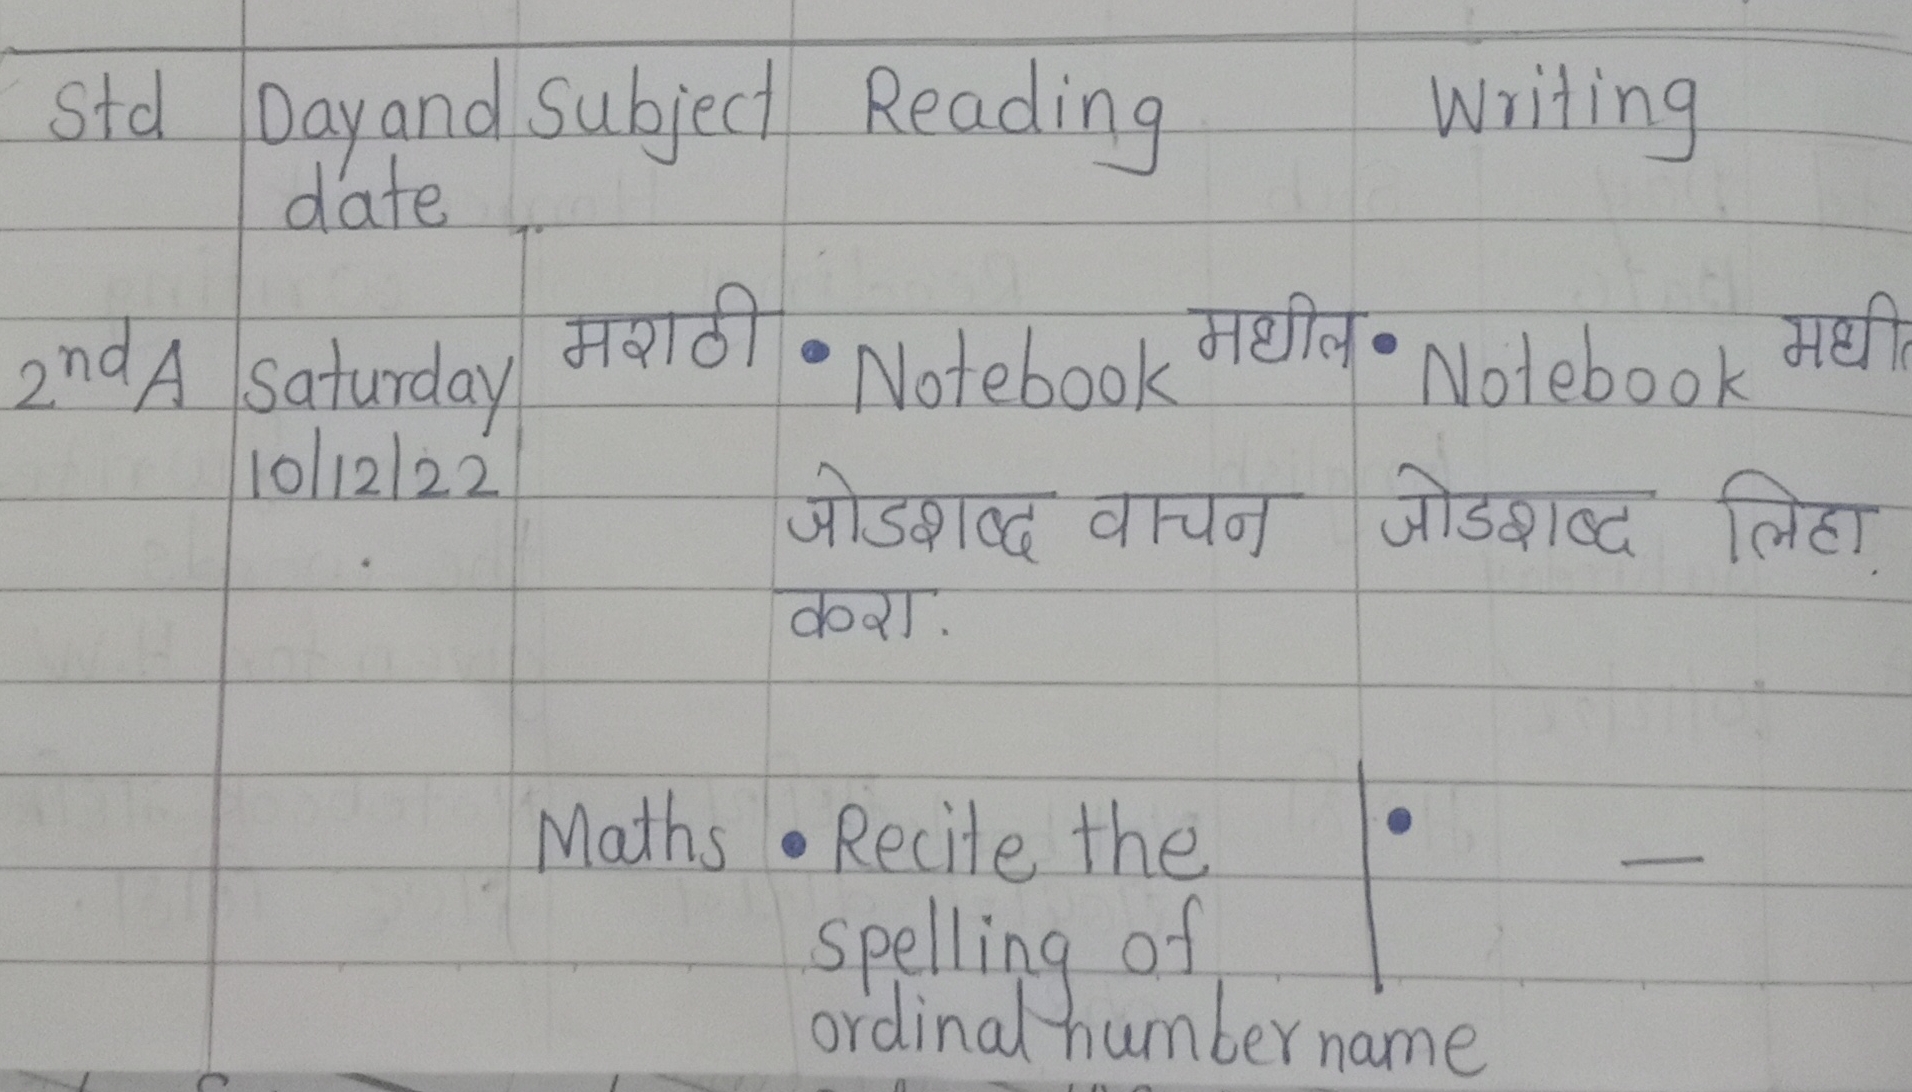 Std Day and Subject Reading Writing
date
2nd A Saturday मराठी • Notebook मधील • Notebook
10/12/22 जोडशब्द वाचन जोडशब्द लिहा.
करा.
Maths • Recite the • —
spelling of
ordinal number name